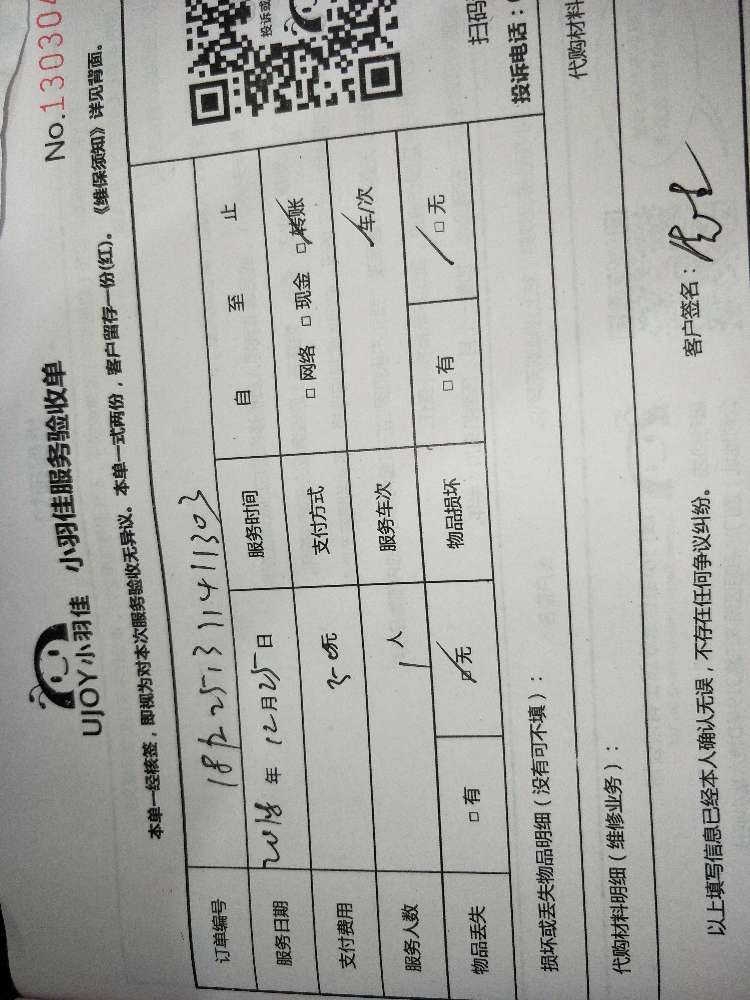 No.130304
UJOY小羽佳 小羽佳服务验收单
本单一经核签，即视为对本次服务验收无异议。本单一式两份，客户留存一份(红)。《维保须知》详见背面。
订单编号
服务日期 2018 年 12 月 25 日 服务时间 自 至 止
支付费用 元 支付方式 □ 网络 □ 现金 □ 转账
服务人数 1 人 服务车次 车/次
物品丢失 □ 有 □ 无 物品损坏 □ 有 □ 无
投诉或
扫码
投诉电话：
损坏或丢失物品明细（没有可不填）：
代购材料明细（维修业务）：
代购材料
以上填写信息已经本人确认无误，不存在任何争议纠纷。 客户签名：